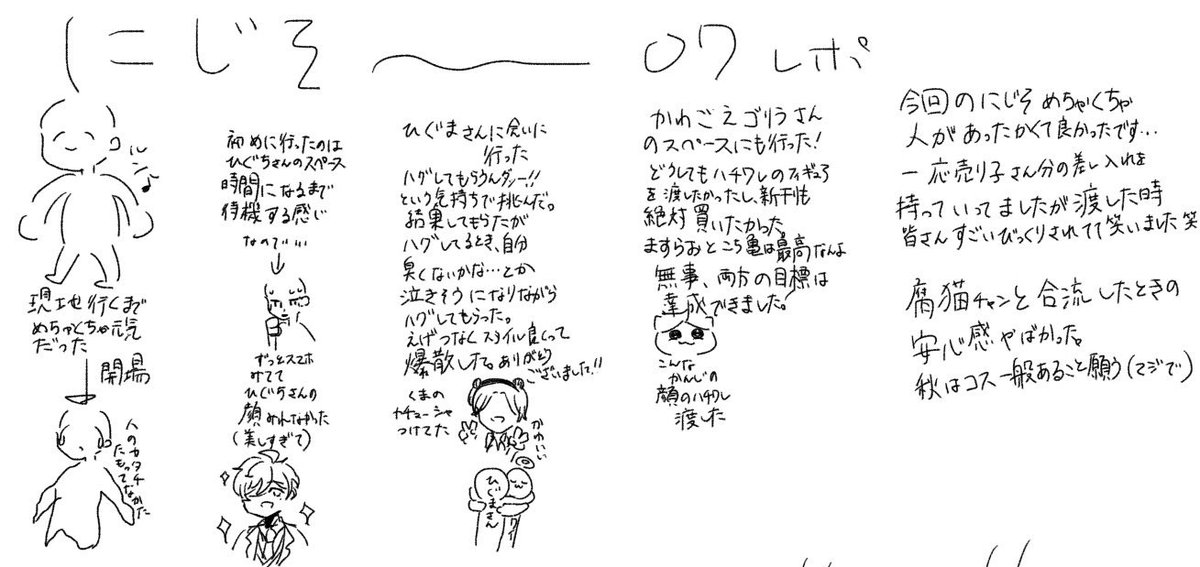 にじそ〜07レポ
ルン♪
現地行くまで
めちゃくちゃ元気
だった
開場
人のカタチ
たもってなかた
初めに行ったのは
ひぐちさんのスペース
時間になるまで
待機する感じ
なので…
ずっとスマホ
みてて
ひぐちさんの
顔みれなかった
(美しすぎて)
ひぐまさんに会いに
行った
ハグしてもらうんダー!!
という気持ちで挑んだ。
結果してもらたが
ハグしてるとき、自分
臭くないかな…とか
泣きそうになりながら
ハグしてもらった。
えげつなくスタイル良くって
爆散した。ありがとう
ございました!!
くまの
カチューシャ
つけてた
かわいい
ひぐまさん
かわごえゴリラさん
のスペースにも行った!
どうしてもハチワレのフィギュア
を渡したかったし、新刊も
絶対買いたかった
ますらおとこち亀は最高なんよ
無事、両方の目標は
達成できました。
こんな
かんじの
顔のハチワレ
渡した
今回のにじそめちゃくちゃ
人があったかくて良かったです…
一応売り子さん分の差し入れを
持っていってましたが渡した時
皆さんすごいびっくりされてて笑いました笑
腐猫チャンと合流したときの
安心感やばかった。
秋はコス一般あること願う(マジで)